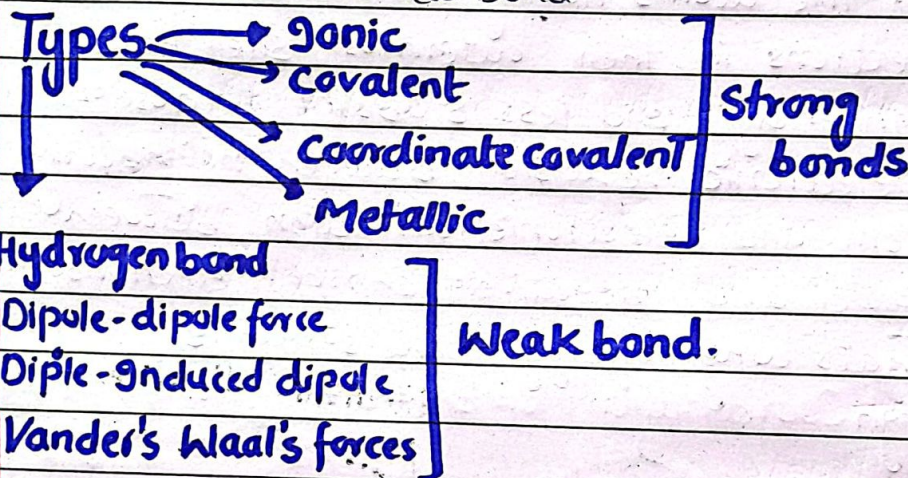 Types Ionic
Covalent
Coordinate covalent
Metallic
Strong
bonds
Hydrogen bond
Dipole-dipole force
Diple-Induced dipole
Vander's Waal's forces
Weak bond.